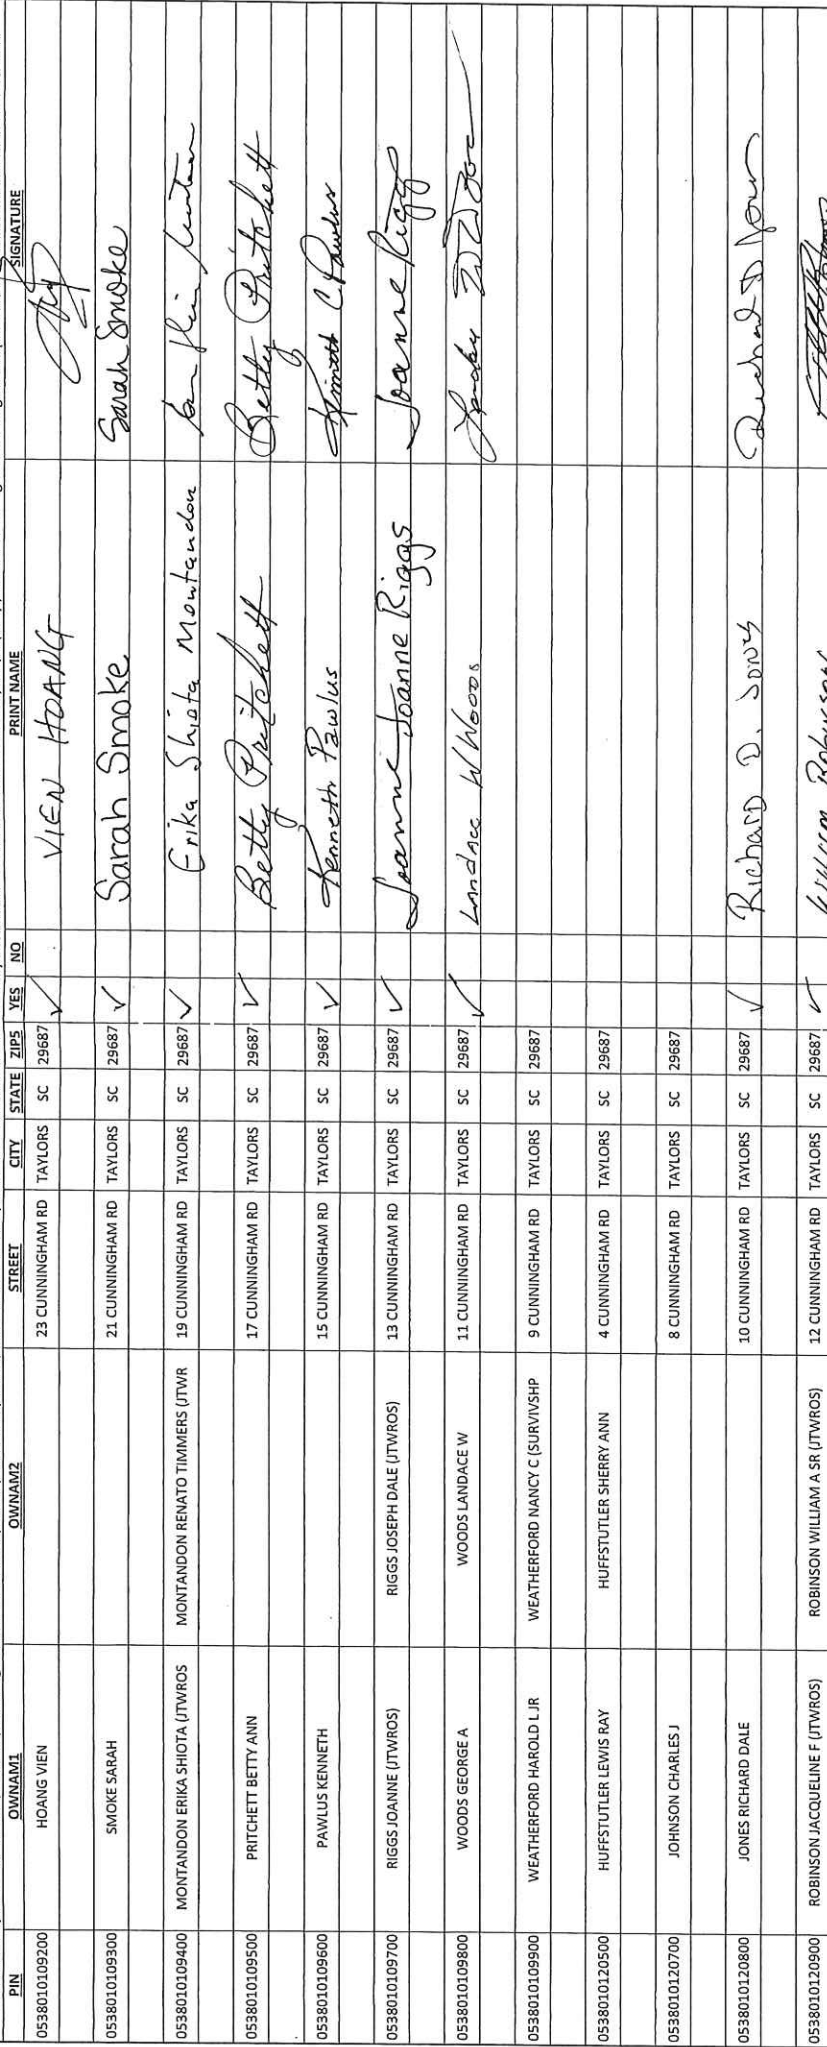 PIN OWNAM1 OWNAM2 STREET CITY STATE ZIP5 YES NO PRINT NAME SIGNATURE
0538010109200 HOANG VIEN 23 CUNNINGHAM RD TAYLORS SC 29687 ✓ VIEN HOANG
0538010109300 SMOKE SARAH 21 CUNNINGHAM RD TAYLORS SC 29687 ✓ Sarah Smoke Sarah Smoke
0538010109400 MONTANDON ERIKA SHIOTA (JTWROS MONTANDON RENATO TIMMERS (JTWR 19 CUNNINGHAM RD TAYLORS SC 29687 ✓ Erika Shiota Montandon
0538010109500 PRITCHETT BETTY ANN 17 CUNNINGHAM RD TAYLORS SC 29687 ✓ Betty Pritchett Betty Pritchett
0538010109600 PAWLUS KENNETH 15 CUNNINGHAM RD TAYLORS SC 29687 ✓ Kenneth Pawlus Kenneth C Pawlus
0538010109700 RIGGS JOANNE (JTWROS) RIGGS JOSEPH DALE (JTWROS) 13 CUNNINGHAM RD TAYLORS SC 29687 ✓ Joanne Joanne Riggs Joanne Riggs
0538010109800 WOODS GEORGE A WOODS LANDACE W 11 CUNNINGHAM RD TAYLORS SC 29687 ✓ Landace W Woods
0538010109900 WEATHERFORD HAROLD L JR WEATHERFORD NANCY C (SURVIVSHP 9 CUNNINGHAM RD TAYLORS SC 29687
0538010120500 HUFFSTUTLER LEWIS RAY HUFFSTUTLER SHERRY ANN 4 CUNNINGHAM RD TAYLORS SC 29687
0538010120700 JOHNSON CHARLES J 8 CUNNINGHAM RD TAYLORS SC 29687
0538010120800 JONES RICHARD DALE 10 CUNNINGHAM RD TAYLORS SC 29687 ✓ Richard D. Jones Richard D Jones
0538010120900 ROBINSON JACQUELINE F (JTWROS) ROBINSON WILLIAM A SR (JTWROS) 12 CUNNINGHAM RD TAYLORS SC 29687 ✓ William Robinson